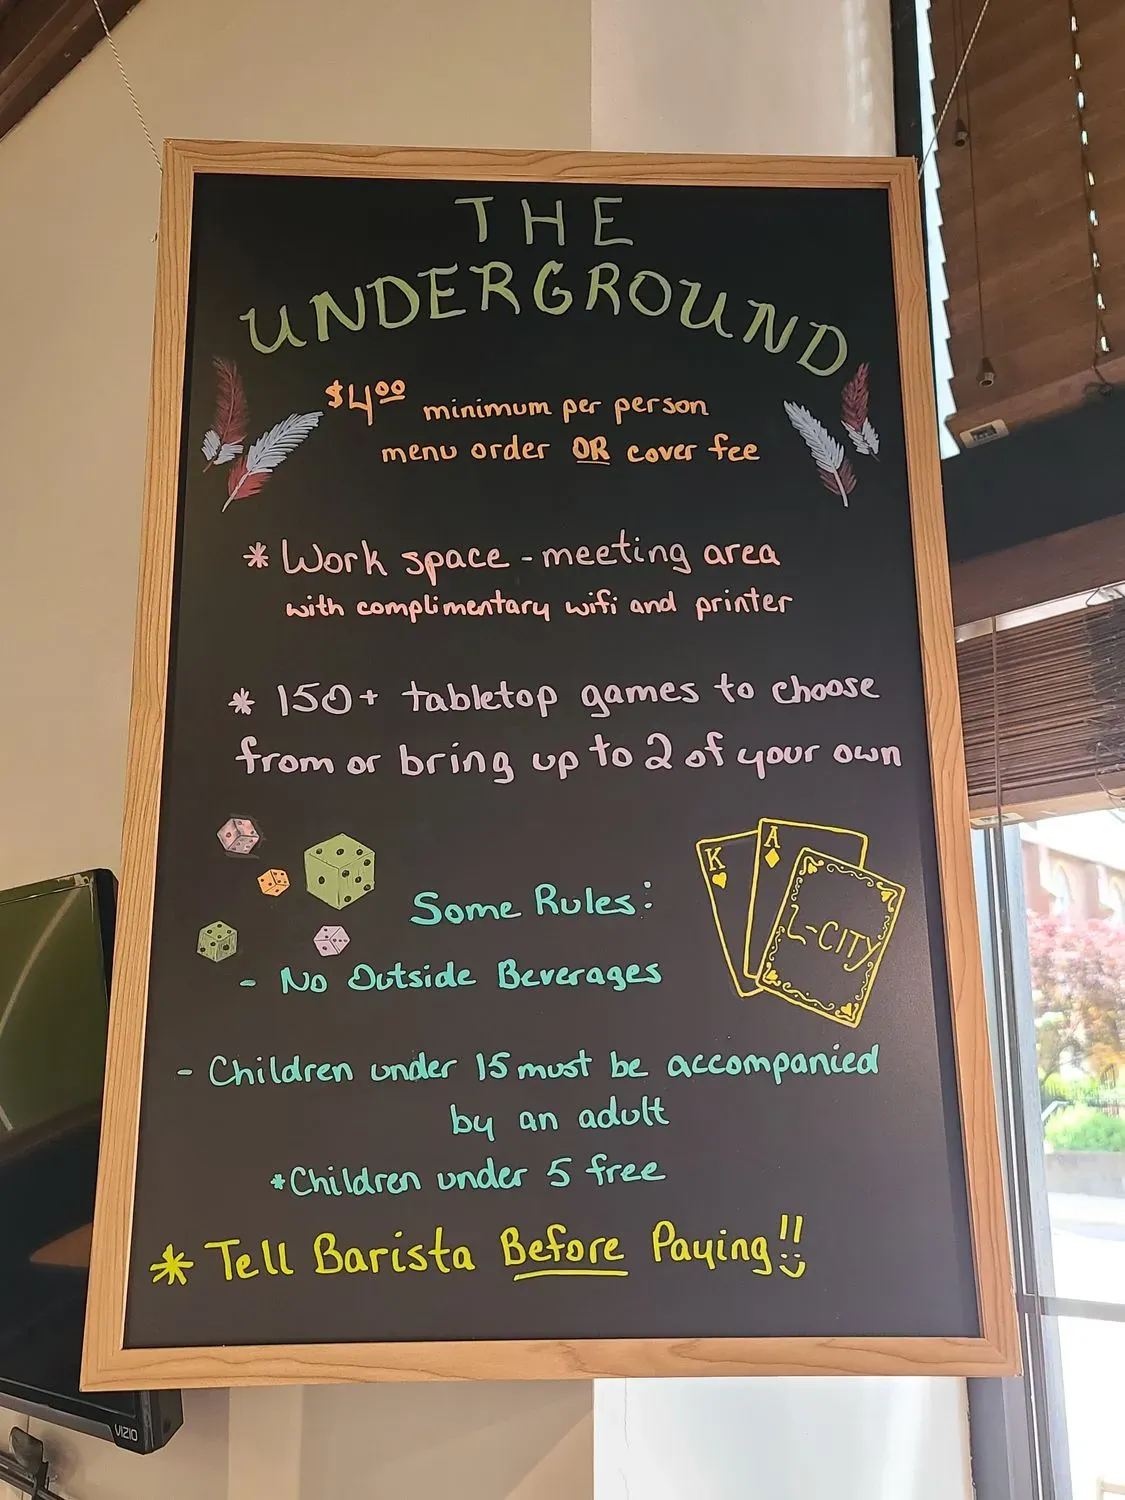 THE
UNDERGROUND
$4.00 minimum per person
menu order OR cover fee
* Work space - meeting area
with complimentary wifi and printer
* 150+ tabletop games to choose
from or bring up to 2 of your own
K
A
L-CITY
Some Rules:
- No Outside Beverages
- Children under 15 must be accompanied
by an adult
*Children under 5 free
* Tell Barista Before Paying!!
VIZIO